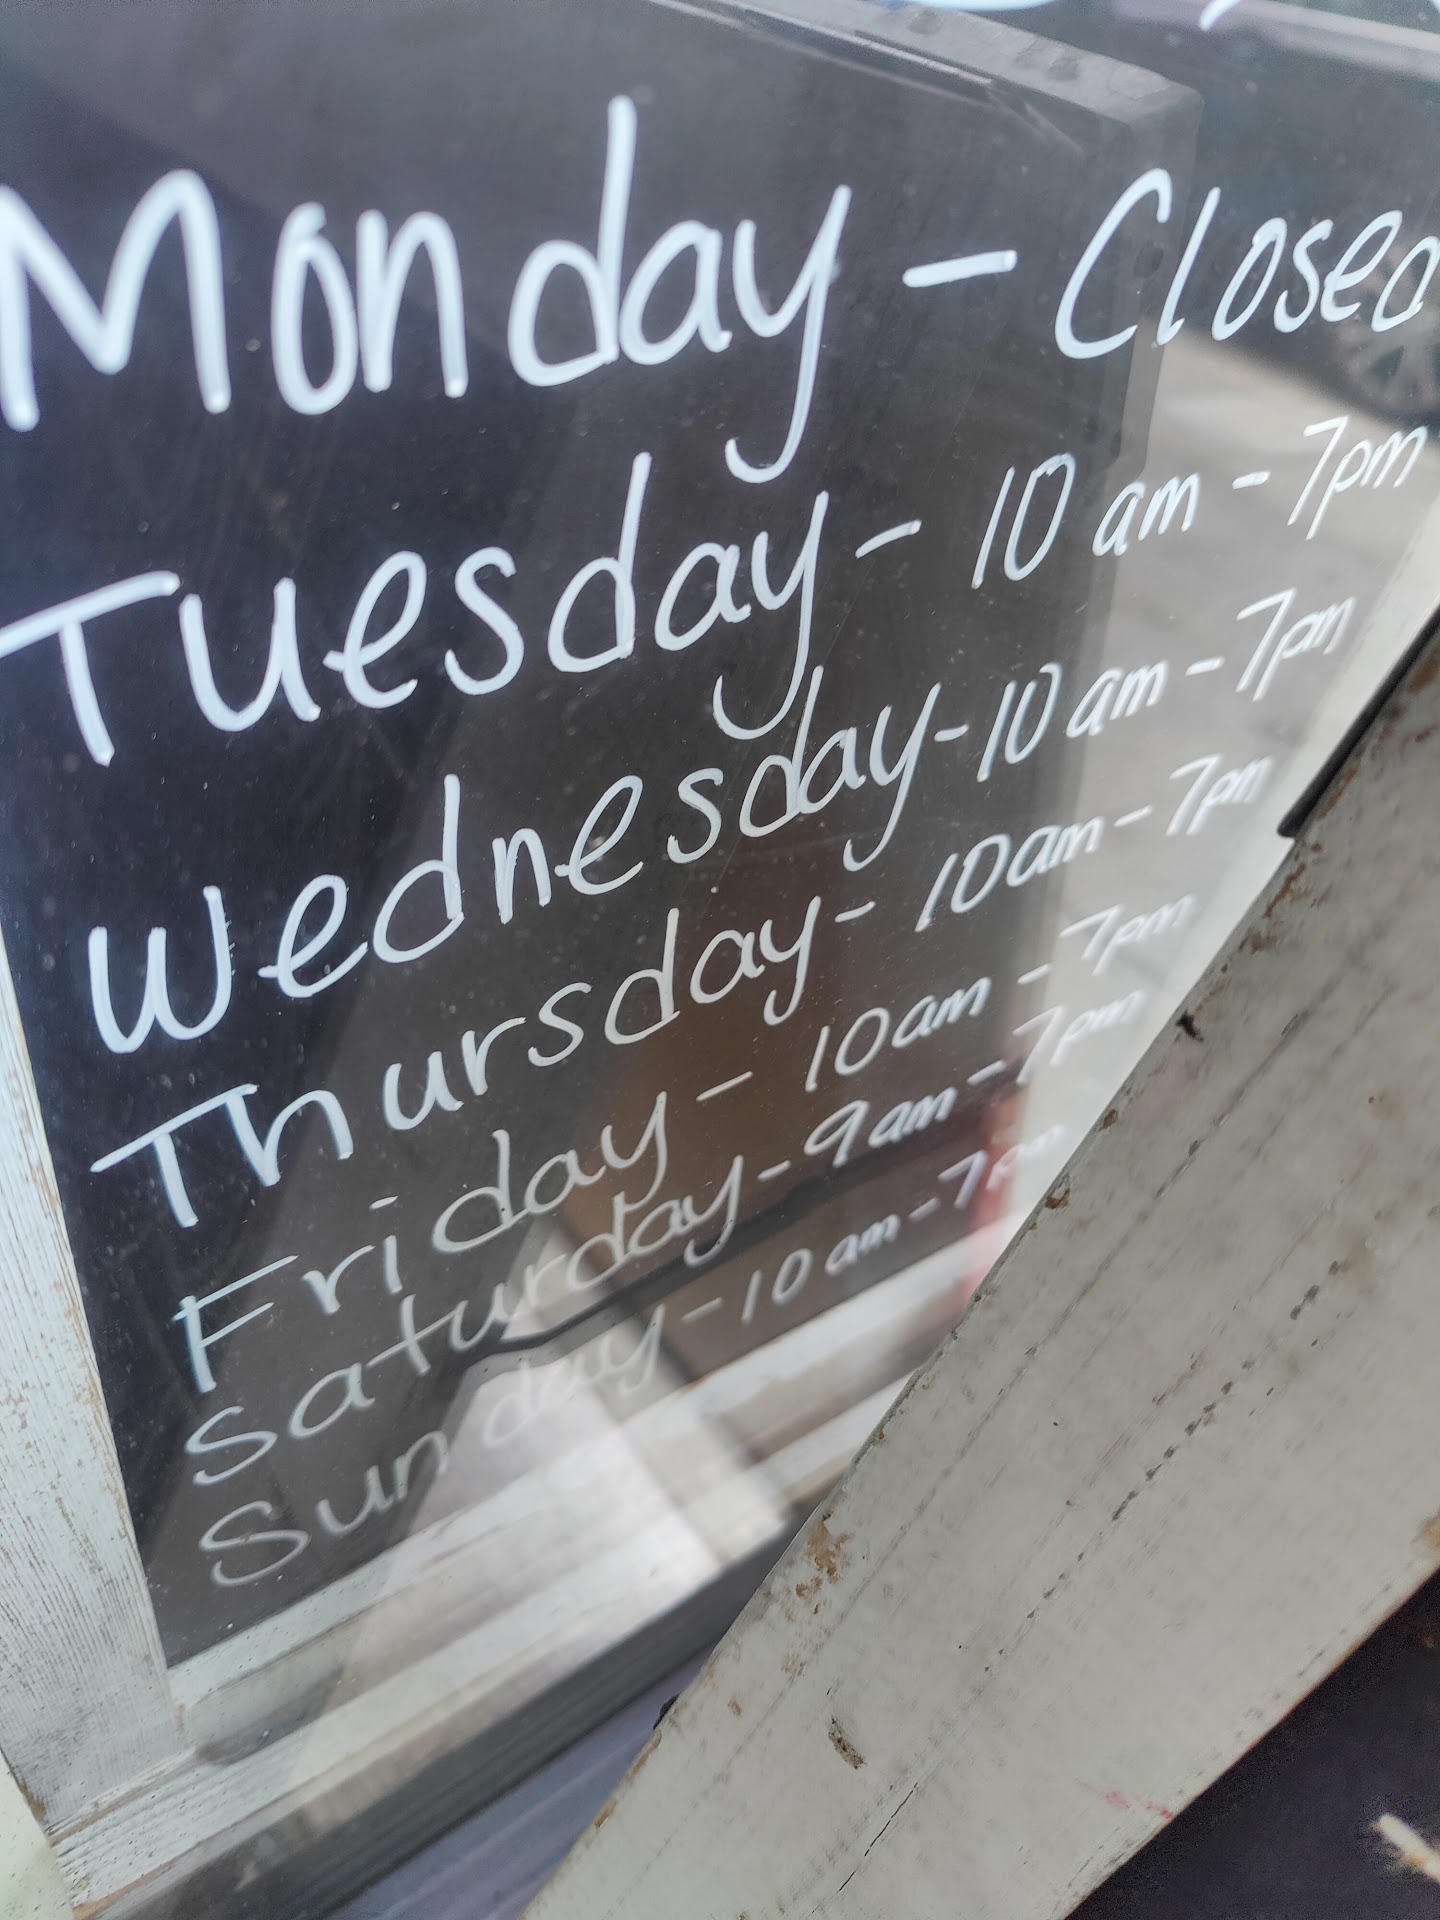 Monday - Closed
Tuesday - 10 am - 7pm
Wednesday - 10 am - 7pm
Thursday - 10am - 7pm
Friday - 10am - 7pm
Saturday - 9am - 7pm
Sunday - 10 am - 7pm